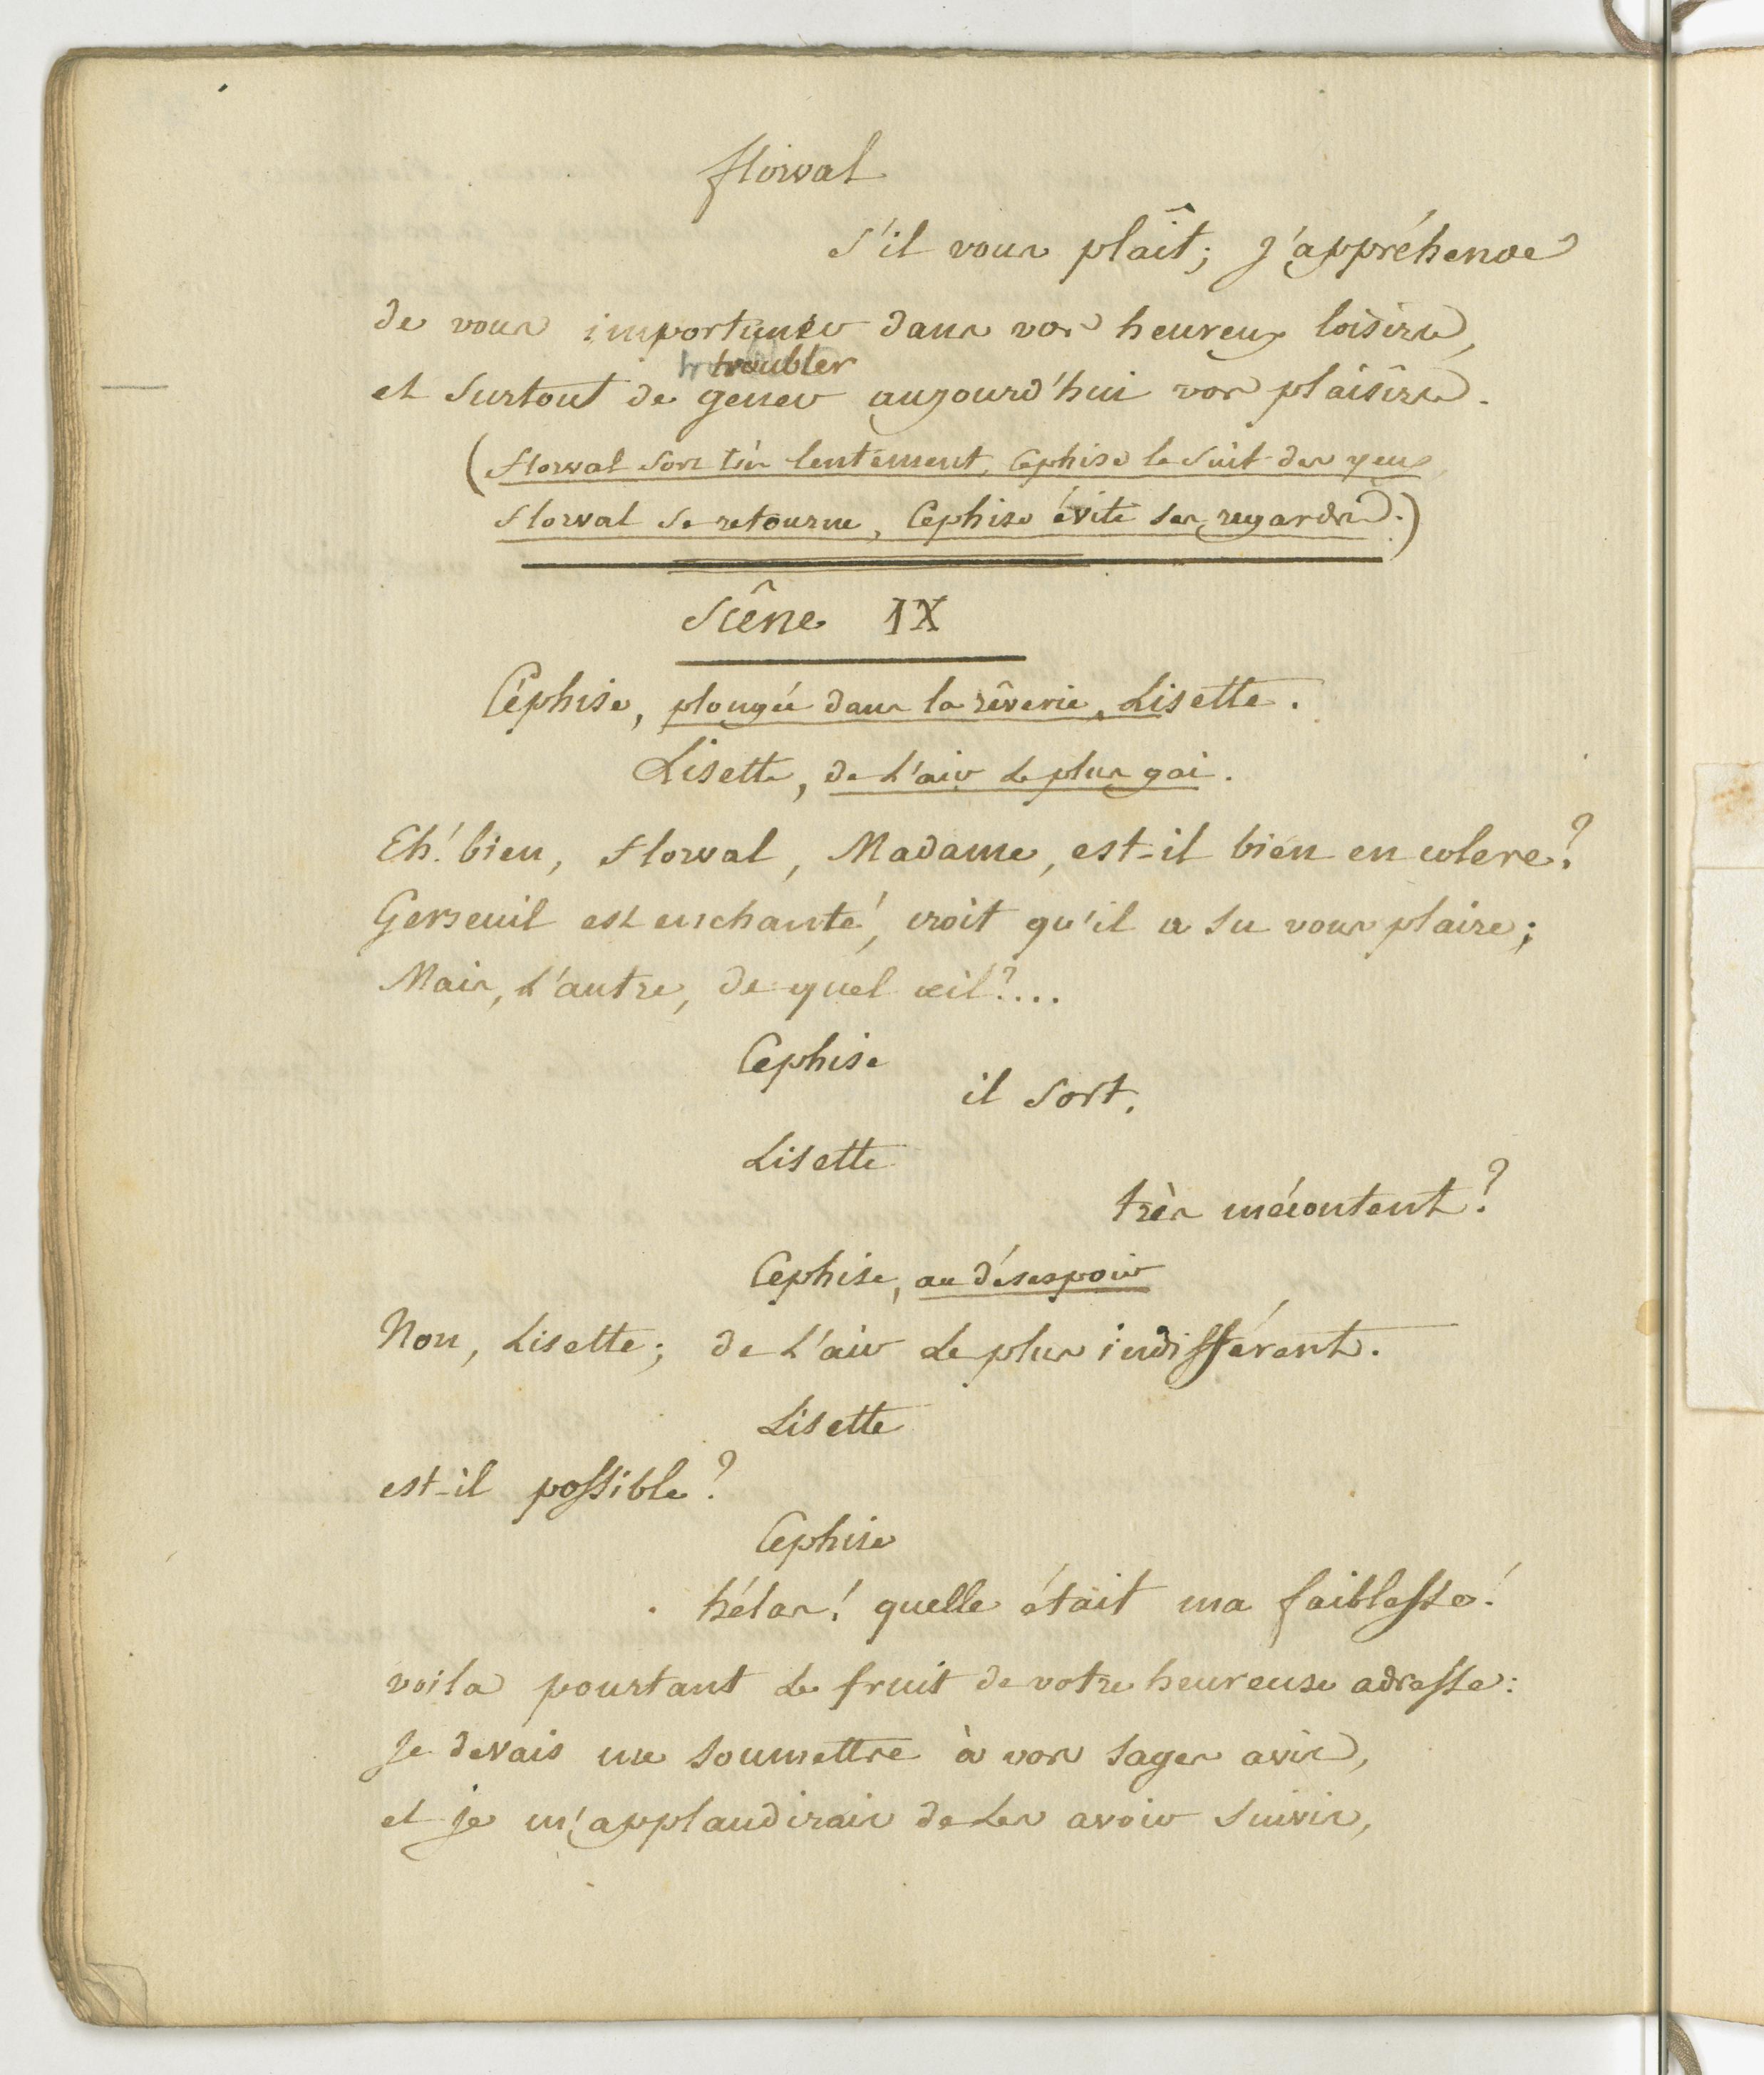 florval
s'il vous plaît; j'appréhende
de vous importuner dans vos heureux loisirs,
troubler
et surtout de gener aujourd'hui vos plaisirs.
(florval sort très lentement, Cephise le suit des yeux,
florval se retourne, Cephise évite ses regards.)
Scêne IX
Céphise, plongée dans la rêverie, Lisette.
Lisette, de l'air le plus gai.
Eh! bien, florval, Madame, est-il bien en colere?
Gerseuil est enchanté, croit qu'il a su vous plaire;
Mais, l'autre, de quel œil?....
Cephise
il sort.
Lisette
très mécontent?
Cephise, au désespoir
Non, Lisette; de l'air le plus indifférent.
Lisette
est-il possible?
Cephise
hélas! quelle était ma faiblesse!
voila pourtant le fruit de votre heureuse adresse:
Je devais me soumettre à vos sages avis,
et je m'applaudirais de les avoir suivis,